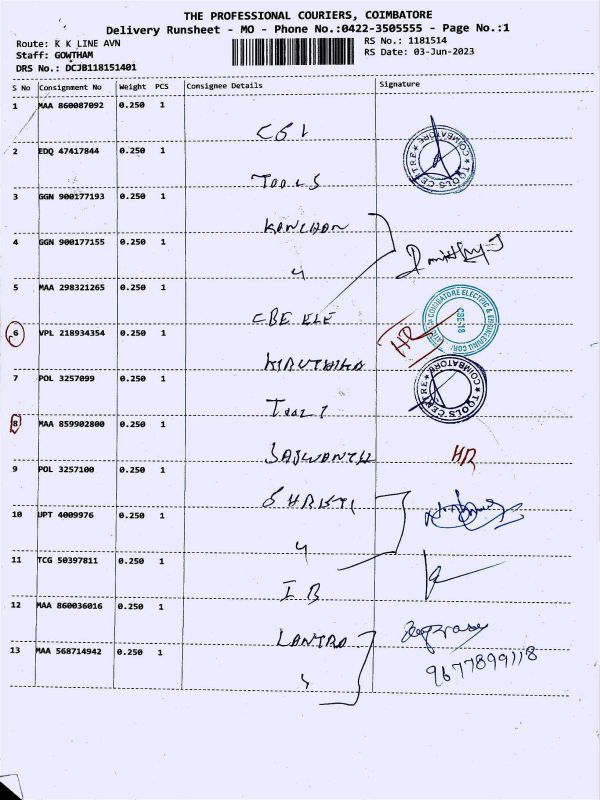 THE PROFESSIONAL COURIERS, COIMBATORE
Delivery Runsheet - MO - Phone No.:0422-3505555 - Page No.:1
Route: K K LINE AVN
RS No.: 1181514
Staff: GOWTHAM
RS Date: 03-Jun-2023
DRS No.: DCJB118151401
S No Consignment No Weight PCS Consignee Details Signature
1 MAA 860087092 0.250 1
2 EDQ 47417844 0.250 1
TOOLS
3 GGN 900177193 0.250 1
KANCHAN
4 GGN 900177155 0.250 1
5 MAA 298321265 0.250 1
CBE ELE
6 VPL 218934354 0.250 1
HR
KIRUTHIKA
7 POL 3257099 0.250 1
8 MAA 859902800 0.250 1
JASWANTH HR
9 POL 3257100 0.250 1
10 UPT 4009976 0.250 1
11 TCG 50397811 0.250 1
I B
12 MAA 860036016 0.250 1
LANTRO
13 MAA 568714942 0.250 1
9677899118
COIMBATORE TOOLS CENTRE
COIMBATORE ELECTRIC & ENGINEERING CORP
CBE-18
COIMBATORE TOOLS CENTRE